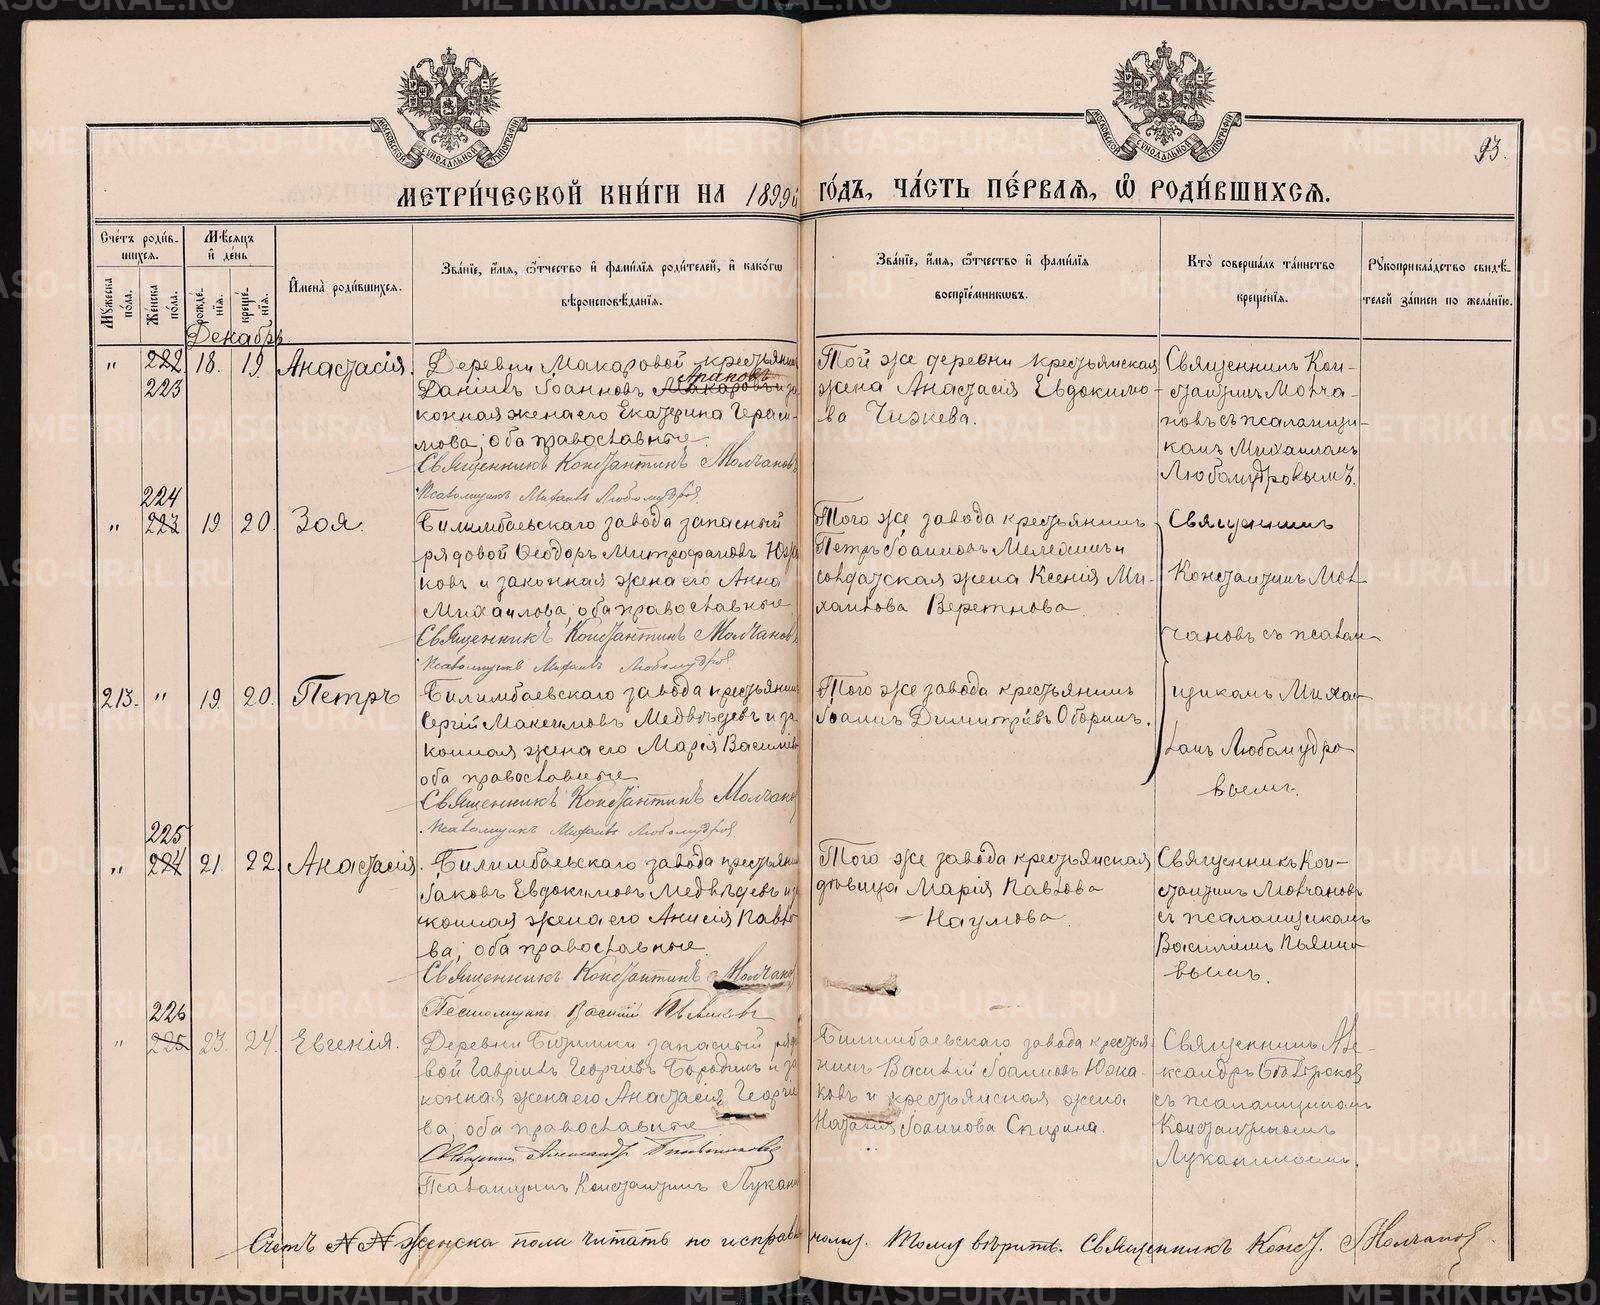 93.
МЕТРИ́ЧЕСКОЙ КНИ́ГИ НА 1899й ГО́ДЪ, ЧА́СТЬ ПЕ́РВАѦ, Ѽ РОДИ́ВШИХСѦ.
Сче́тъ роди́вшихсѧ.
Мꙋжеска по́ла.
Же́нска по́ла.
Мѣ́сѧцъ и҆ де́нь
рожде́нїѧ.
креще́нїѧ.
И҆мена̀ роди́вшихсѧ.
Зва́нїе, и҆́мѧ, ѻ҆́тчество и҆ фами́лїѧ роди́телей, и҆ како́гѡ
вѣроисповѣ́данїѧ.
Зва́нїе, и҆́мѧ, ѻ҆́тчество и҆ фами́лїѧ
воспрїе́мникѡвъ.
Кто̀ соверша́лъ та́инство
креще́нїѧ.
Рꙋкоприкла́дство свидѣ́-
телей за́писи по жела́нїю.
Декабрь
" 222 18. 19. Анастасія.
223
Деревни Макаровой крестьянинъ
Даніилъ Іоанновъ Макаровъ и за
конная жена его Екатерина Гераси-
мова, оба православные.
Священникъ Константинъ Молчановъ
Псаломщикъ Михаилъ Любомудровъ
Той же деревни крестьянская
жена Анастасія Евдокимо-
ва Чижева.
Священникъ Кон-
стантинъ Молча-
новъ съ псаломщи-
комъ Михаиломъ
Любомудровымъ.
224
" 223 19. 20. Зоя.
Билимбаевскаго завода запасный
рядовой Ѳеодоръ Митрофановъ Южа
ковъ и законная жена его Анна
Михаилова, оба православные
Священникъ Константинъ Молчановъ
Псаломщикъ Михаилъ Любомудровъ
Того же завода крестьянинъ
Петръ Іоанновъ Мелехинъ и
солдатская жена Ксенія Ми-
хаилова
Священникъ
Константинъ Мол-
чановъ съ псалом-
щикомъ Миха-
иломъ Любомудро-
вымъ.
213. " 19. 20. Петръ
Билимбаевскаго завода крестьянинъ
Сергій Максимовъ Медвѣдевъ и за
конная жена его Марія Василье
оба православные
Священникъ Константинъ Молчанов
Псаломщикъ Михаилъ Любомудровъ
Того же завода крестьянинъ
Іоаннъ Димитріевъ Оборинъ.
225
" 224 21. 22. Анастасія.
Билимбаевскаго завода крестьянин
Іаковъ Евдокимовъ Медвѣдевъ и за
конная жена его Анисія Павло
ва, оба православные.
Священникъ Константинъ Молчанов
Псаломщикъ Василій Пьянковъ
Того же завода крестьянская
дѣвица Марія Павлова
Наумова.
Священникъ Кон-
стантинъ Молчановъ
съ псаломщикомъ
Василіемъ Пьянко-
вымъ.
226
" 225 23. 24. Евгенія.
Деревни запасный рядо
вой Гавріилъ Георгіевъ Бородинъ и за
конная жена его Анастасія Георгіе
ва, оба православные
Священникъ Александръ
Псаломщикъ Константинъ Лукани
Билимбаевскаго завода крестья-
нинъ Василій Іоанновъ Южа-
ковъ и крестьянская жена
Наталія Іоаннова Спирина.
Священникъ Але-
ксандръ
съ псаломщикомъ
Константиномъ
Луканинымъ.
Счетъ №№ женска пола читать по исправленному. Тому вѣрить. Священникъ Конст. Молчановъ
METRIKI.GASO-URAL.RU